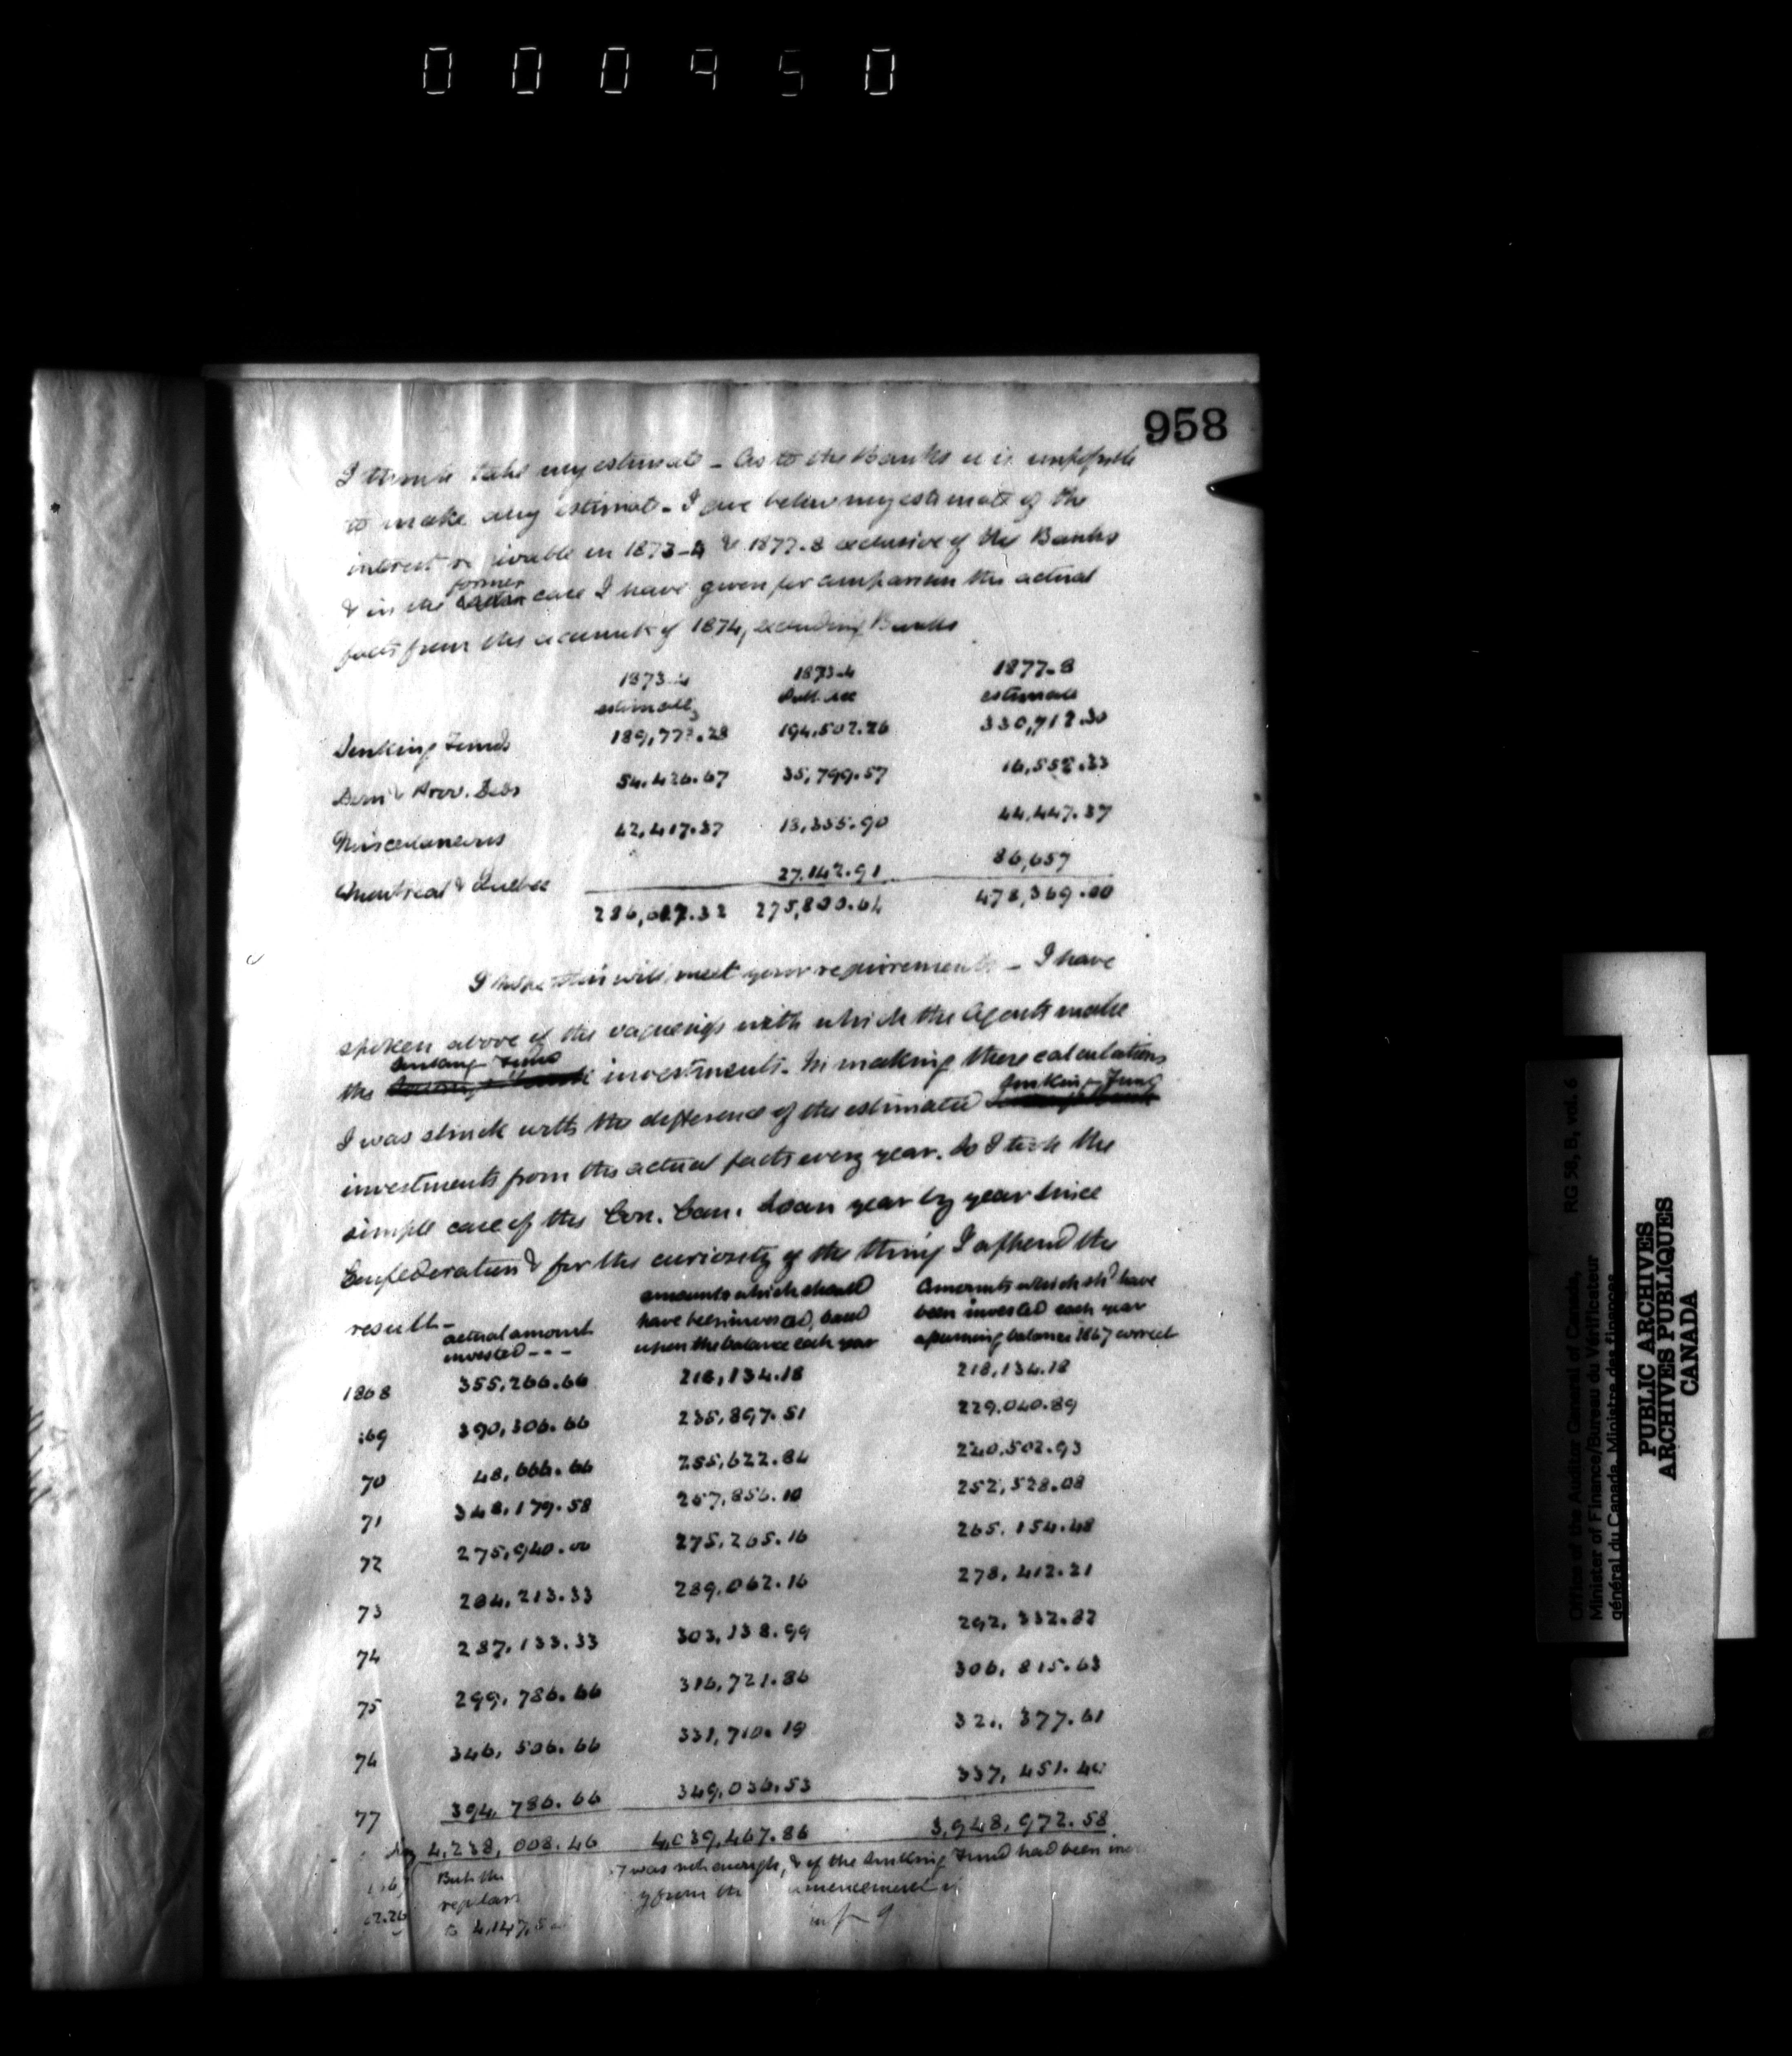 000950
958
I should take my estimate - As to the Banks it is impossible
to make any estimate - I give below my estimate of the
interest receivable in 1873-4 & 1877-8 exclusive of the Banks
former
& in the latter case I have given for comparison the actual
facts from the accounts of 1874, excluding Banks
1873-4 1873-4 1877-8
estimate Pub. Acc estimate
Sinking Funds 189,773.28 194,502.26 330,712.30
Dom & Prov. Debs 54,426.67 35,799.57 16,552.33
Miscellaneous 42,417.37 18,355.90 44,447.37
Montreal & Quebec 27,142.91 86,657
286,617.32 275,800.64 478,369.00
I hope this will meet your requirements - I have
spoken above of the vagueness with which the Agents make
Sinking Fund
the investments. In making these calculations
Sinking Fund
I was struck with the difference of the estimated
investments from the actual facts every year. So I took the
simple case of the Con. Can. Loan year by year since
Confederation & for the curiosity of the thing I append the
result -
actual amount invested - - -
amounts which should have been invested, based upon the balance each year
Amounts which shd have been invested each year assuming balance 1867 correct
1868 355,266.66 218,134.18 218,134.18
69 390,306.66 235,897.51 229,040.89
70 48,666.66 255,622.84 240,502.93
71 348,179.58 257,856.10 252,528.08
72 275,940.00 275,265.16 265,154.48
73 284,213.33 289,062.16 278,412.21
74 287,133.33 303,138.99 292,332.82
75 299,786.66 316,721.86 306,815.63
76 346,506.66 331,710.19 32 ,377.61
77 394,786.66 349,036.53 337,451.40
4,238,008.46 4,039,467.86 3,948,972.58
But the was not enough, & if the Sinking Fund had been
regular y from the
to 4,147,
Office of the Auditor General of Canada, RG 58, B, vol. 6
Minister of Finance/Bureau du Vérificateur
général du Canada, Ministre des Finances
PUBLIC ARCHIVES
ARCHIVES PUBLIQUES
CANADA